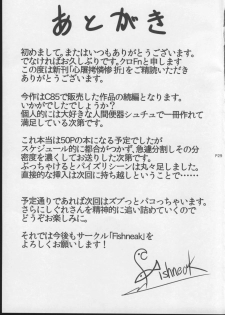 あとがき
初めまして。またはいつもありがとうございます。
でなければお久しぶりです、クロFnと申します
この度は新刊「心屠拷情惨 折」をご精読いただき
ありがとうございます。
今作はC85で販売した作品の続編となります。
いかがでしたでしょうか?
個人的には大好きな人間便器シュチュで一冊作れて
満足している次第です。
これ本当は50Pの本になる予定でしたが
スケジュール的に都合がつかず、急遽分割しその分
密度を濃くしてお送りした次第です。
ぶっちゃけるとパイズリシーンは丸々足しました。
直接的な挿入は次回に持ち越しということで…
予定通りであれば次回はズブっとパコっちゃいます。
さらにしぐれさんを精神的に追い詰めていくので
どうぞお楽しみに。
それでは今後もサークル「Fishneak」を
よろしくお願いします!
Fishneak